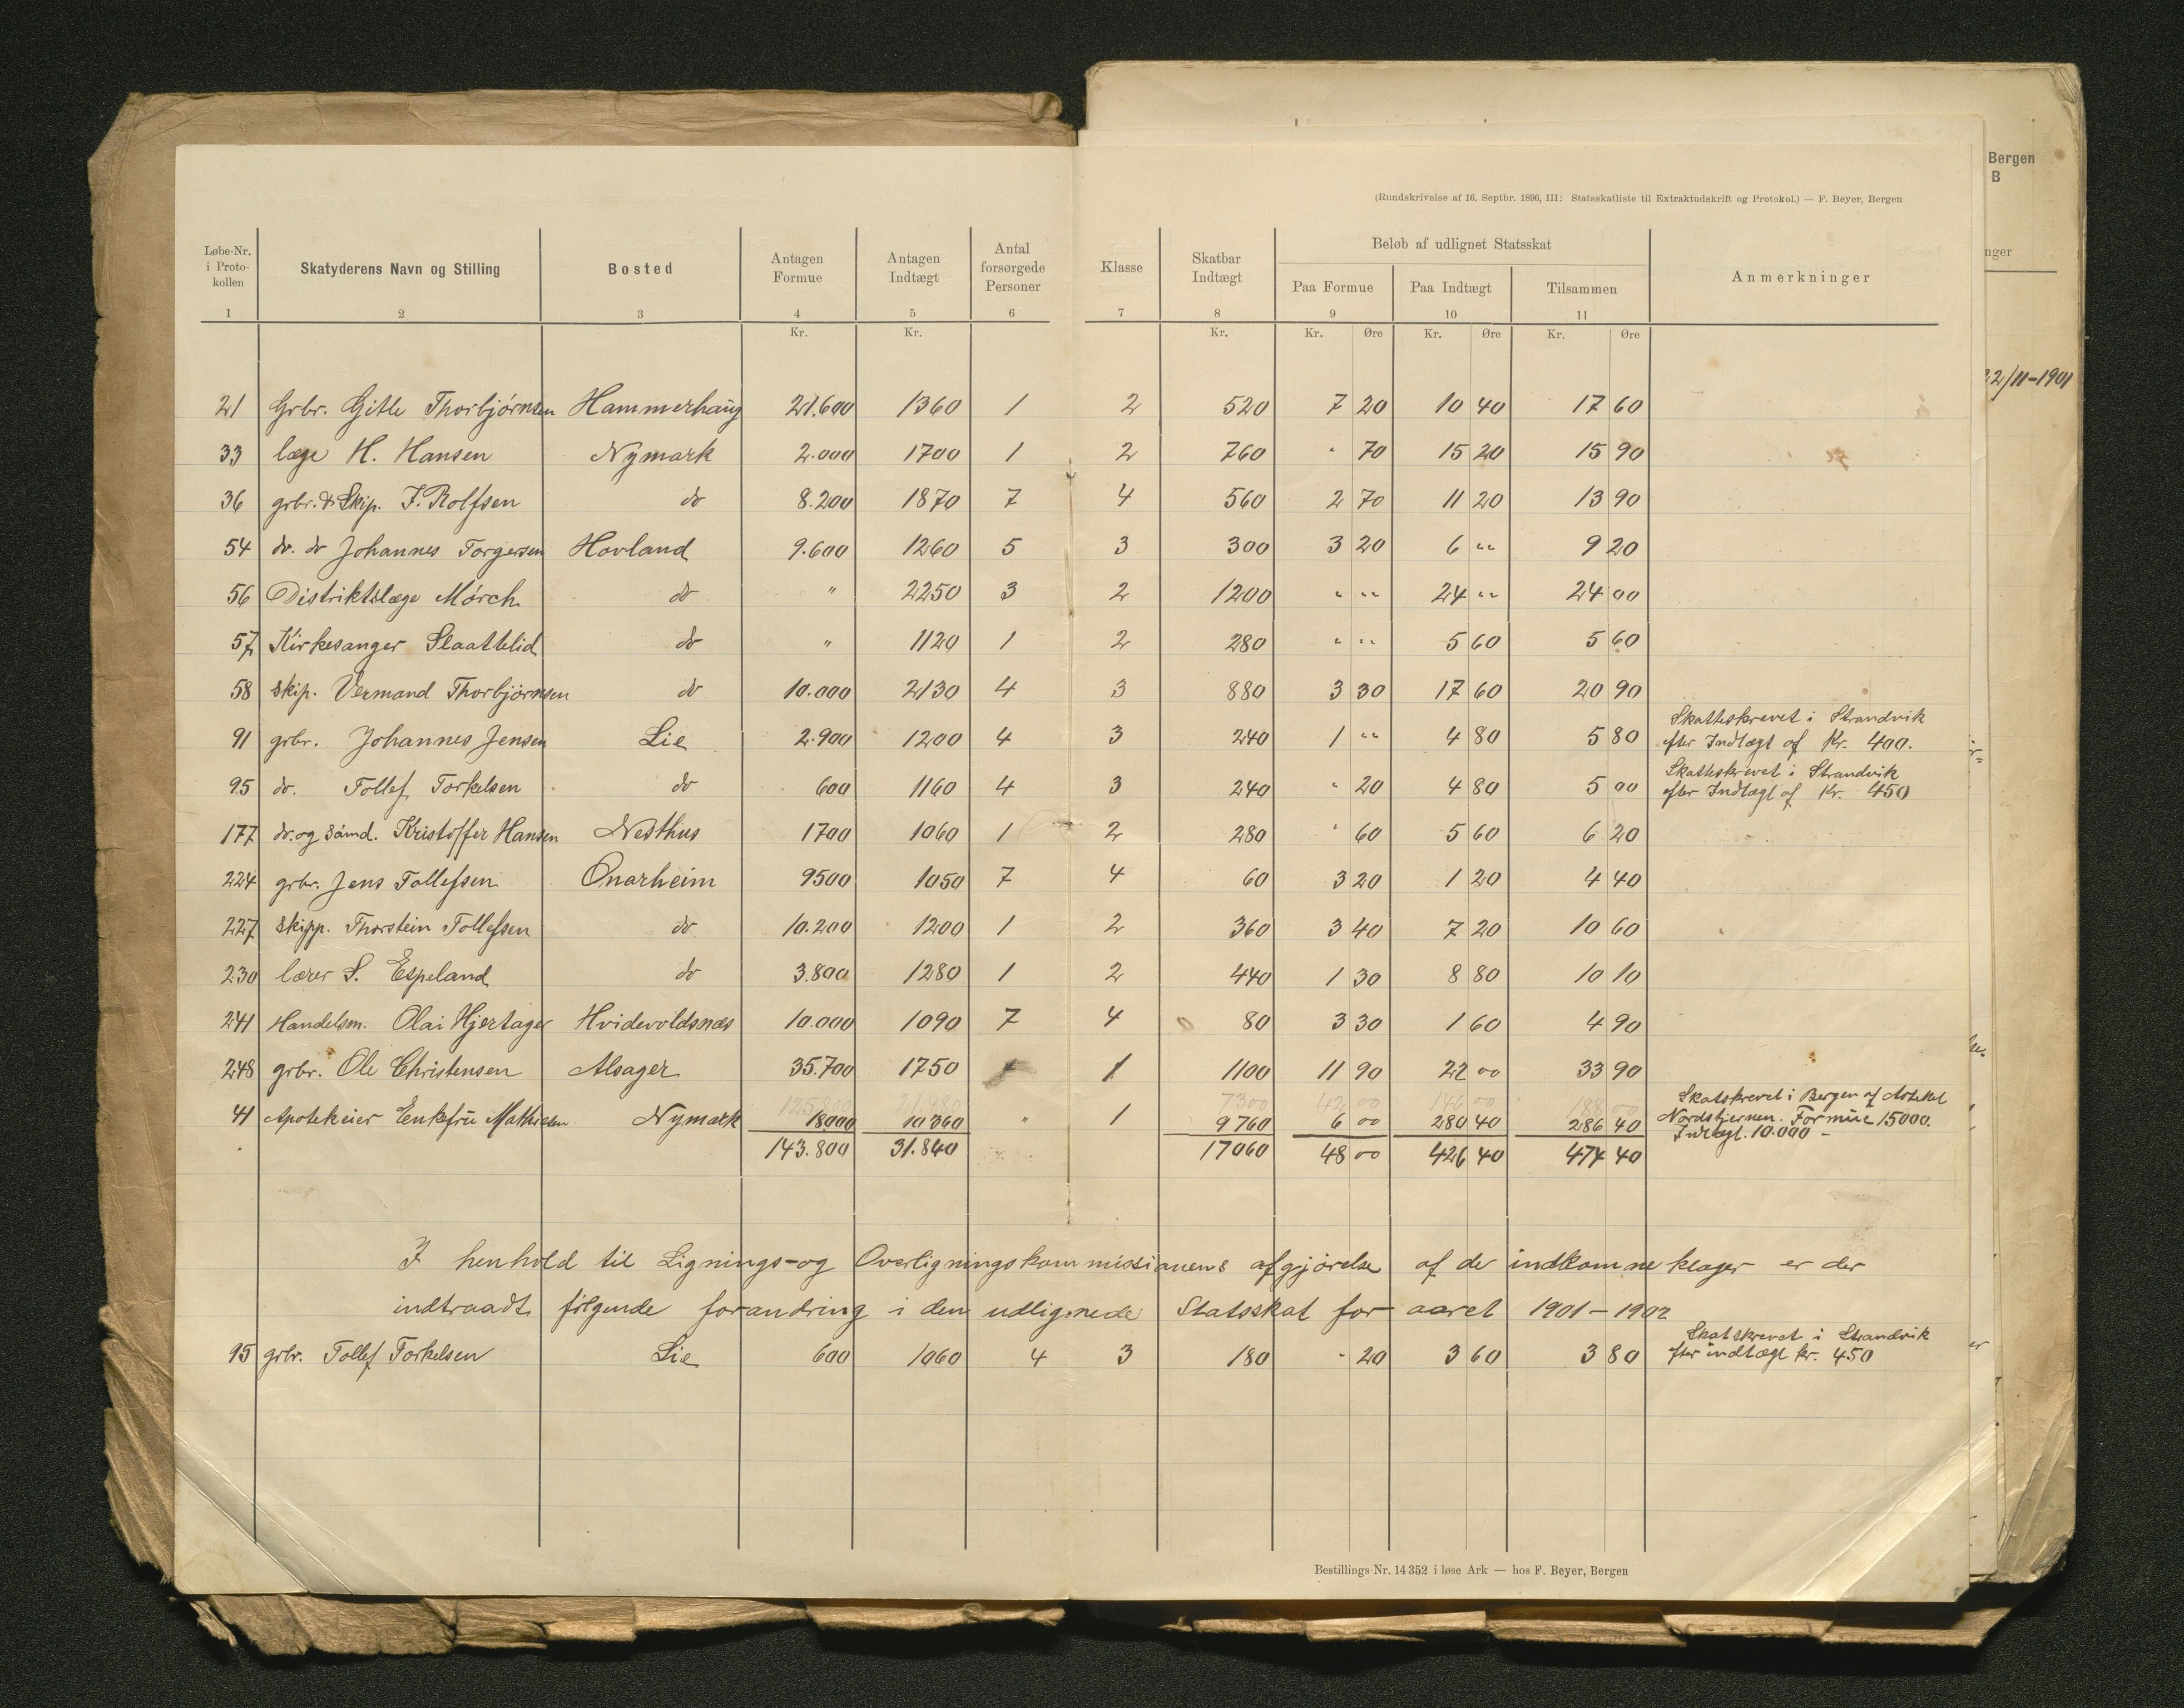 Bergen
B
nger
22/11-1901
(Rundskrivelse af 16. Septbr. 1896, III: Statsskatliste til Extraktudskrift og Protokol.) — F. Beyer, Bergen
Løbe-Nr. i Proto- kollen Skatyderens Navn og Stilling Bosted Antagen Formue Antagen Indtægt Antal forsørgede Personer Klasse Skatbar Indtægt Beløb af udlignet Statsskat Anmerkninger
Paa Formue Paa Indtægt Tilsammen
1 2 3 4 5 6 7 8 9 10 11
Kr. Kr. Kr. Kr. Øre Kr. Øre Kr. Øre
21 Grbr. Gitle Thorbjørnsen Hammerhaug 21.600 1360 1 2 520 7 20 10 40 17 60
33 læge H. Hansen Nymark 2.000 1700 1 2 760 " 70 15 20 15 90
36 grbr. & Skip. J. Rolfsen do 8.200 1870 7 4 560 2 70 11 20 13 90
54 do. do Johannes Torgersen Hovland 9.600 1260 5 3 300 3 20 6 " 9 20
56 Distriktslæge Mörch do " 2250 3 2 1200 " " 24 " 24 00
57 Kirkesanger Slaattelid do " 1120 1 2 280 " " 5 60 5 60
58 Skip. Vermand Thorbjörnsen do 10.000 2130 4 3 880 3 30 17 60 20 90
91 grbr. Johannes Jensen Lie 2.900 1200 4 3 240 1 " 4 80 5 80 Skatteskrevet i Strandvik
efter Indtægt af Kr. 400.
95 do. Tollef Torkelsen do 600 1160 4 3 240 " 20 4 80 5 00 Skatteskrevet i Strandvik
efter Indtægt af Kr. 450
177 do. og Sämd. Kristoffer Hansen Nesthus 1700 1060 1 2 280 " 60 5 60 6 20
224 grbr. Jens Tollefsen Onarheim 9500 1050 7 4 60 3 20 1 20 4 40
227 Skipp. Thorstein Tollefsen do 10.200 1200 1 2 360 3 40 7 20 10 60
230 lærer S. Espeland do 3.800 1280 1 2 440 1 30 8 80 10 10
241 Handelsm. Olai Hjertager Hvidevoldsnæs 10.000 1090 7 4 80 3 30 1 60 4 90
248 grbr. Ole Christensen Alsager 35.700 1750 1 1100 11 90 22 00 33 90
125.800 21.480 7300 42 00 146 00 188 00
41 Apotekeier Enkefru Mathiesen Nymark 18.000 10360 " 1 9760 6 00 280 40 286 40 Skatskrevet i Bergen af
Nordstjernen. Formue 15000.
Indtægt. 10.000 –
143.800 31.840 17060 48 00 426 40 474 40
I henhold til Lignings- og Overligningskommissionens afgjörelse af de indkomne klager er der
indtraadt fölgende forandring i den udlignede Statsskat for aaret 1901–1902
95 grbr. Tollef Torkelsen Lie 600 1060 4 3 180 " 20 3 60 3 80 Skatskrevet i Strandvik
efter indtægt kr. 450
Bestillings-Nr. 14352 i løse Ark — hos F. Beyer, Bergen